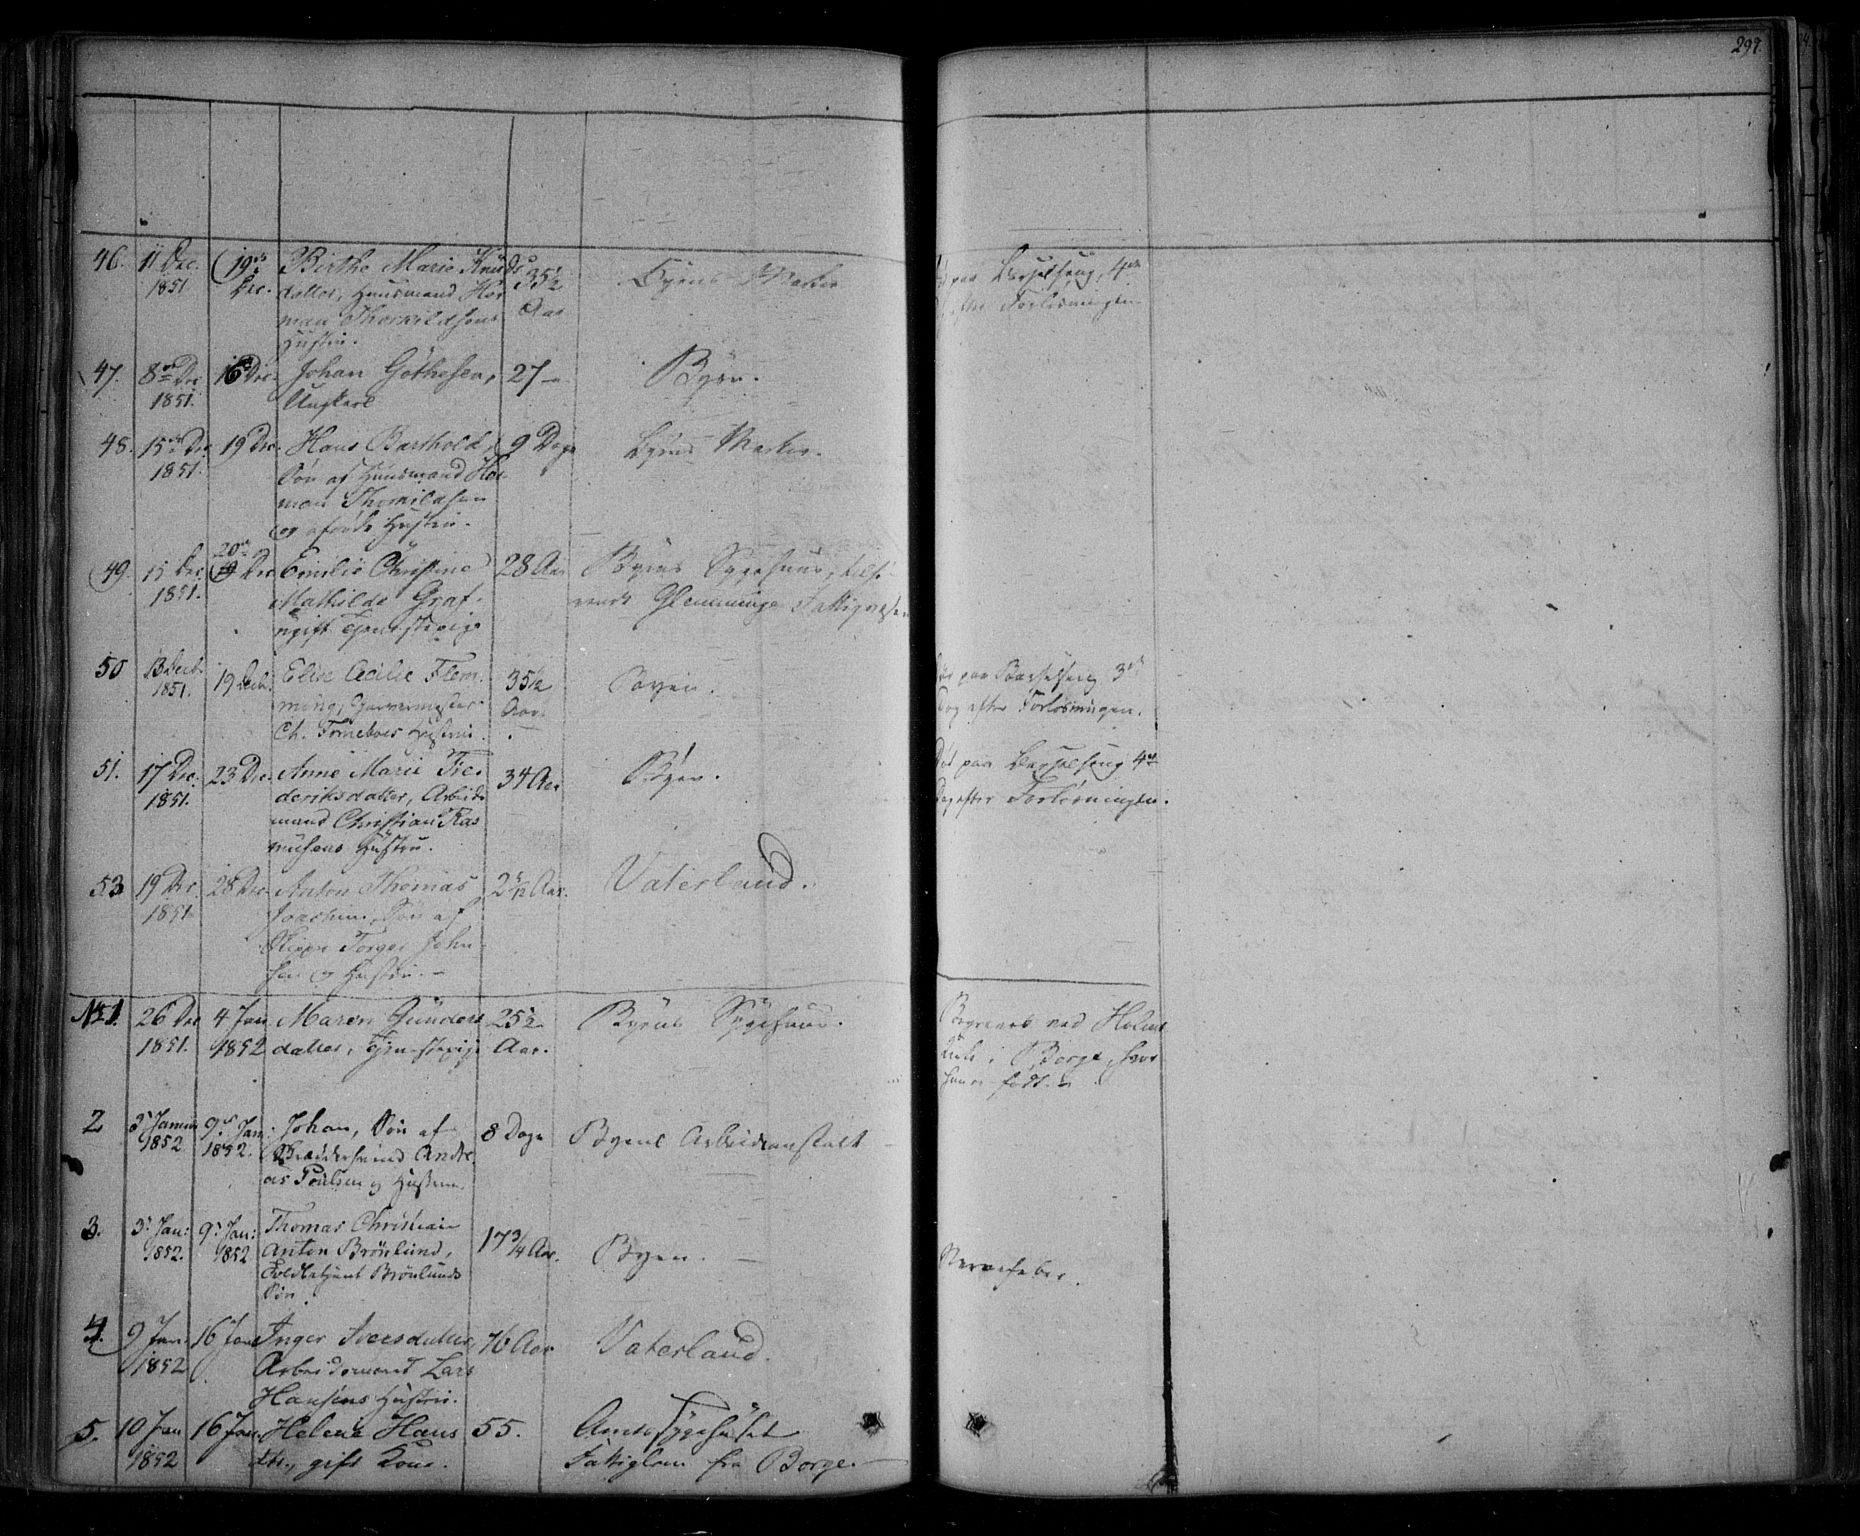 297.
46. 11 Dec. 1851 19de Dec. Birthe Marie Knuds 35½ Aar Byens Marker Død paa Barselseng, 4de
datter, Huusmand Her
man Thorkildsens efter Forløsningen
Hustru.
47. 8de Dec 1851. 16 Dec. Johan Göthesen, 27 Byen.
Ungkarl
48. 15de Dec 1851. 19 Dec. Hans Barthold, 9 Dage Byens Marker.
Søn af Huusmand Her
man Thorkildsen
og Hustru.
49. 15 Dec 1851. 20de Dec Emilie Christine 28 Aar Byens Sygehuus, tilhø
Mathilde Graf, rende Glemminge Fattigvæsen
ugift Tjenestepige
50 13 Decb. 1851. 19 Decb. Elise Cecilie Flem 35½ Aar. Byen. Død paa Barselseng 3de
ming, Garvermester Dag efter Forløsningen.
Ch. Torneboes Hustru.
51. 17 Dec. 1851. 23 Dec. Anne Marie Fre 34 Aar Byen. Død paa Barselseng 4de
deriksdatter, Arbeids Dag efter Forløsningen.
mand Christian Ras
musens Hustru.
53 19 Dec. 1851 28 Dec. Anton Thomas 2 Aar. Vaterland.
Joachim, Søn af
Skipper Torger John
sen og Hustru.
No 1. 26 Dec 1851. 4 Jan 1852 Maren Gunders 25½ Aar. Byens Sygehuus. Begravet ved Holme
datter, Tjenestepige kirke i Borge, hvor
hun er født.
2 3 Januar 1852 9de Jan: 1852. Johan, Søn af 8 Dage Byens Arbeidsanstalt
Andre
as Poulsen og Hustru.
3. 3 Jan: 1852. 9 Jan: 1852 Thomas Christian 17¾ Aar. Byen. Nervefeber.
Anton Brönlund,
Toldbetjent Brönlunds
Søn.
4. 9 Jan. 1852 16 Jan Inger Iversdatter, 76 Aar Vaterland.
Arbeidsmand Lars
Hansens Hustru.
5. 10 Jan 1852 16 Jan. Helene Hans 55. Amtssygehuset
dtr., gift Kone. Fattiglem fra Borge.